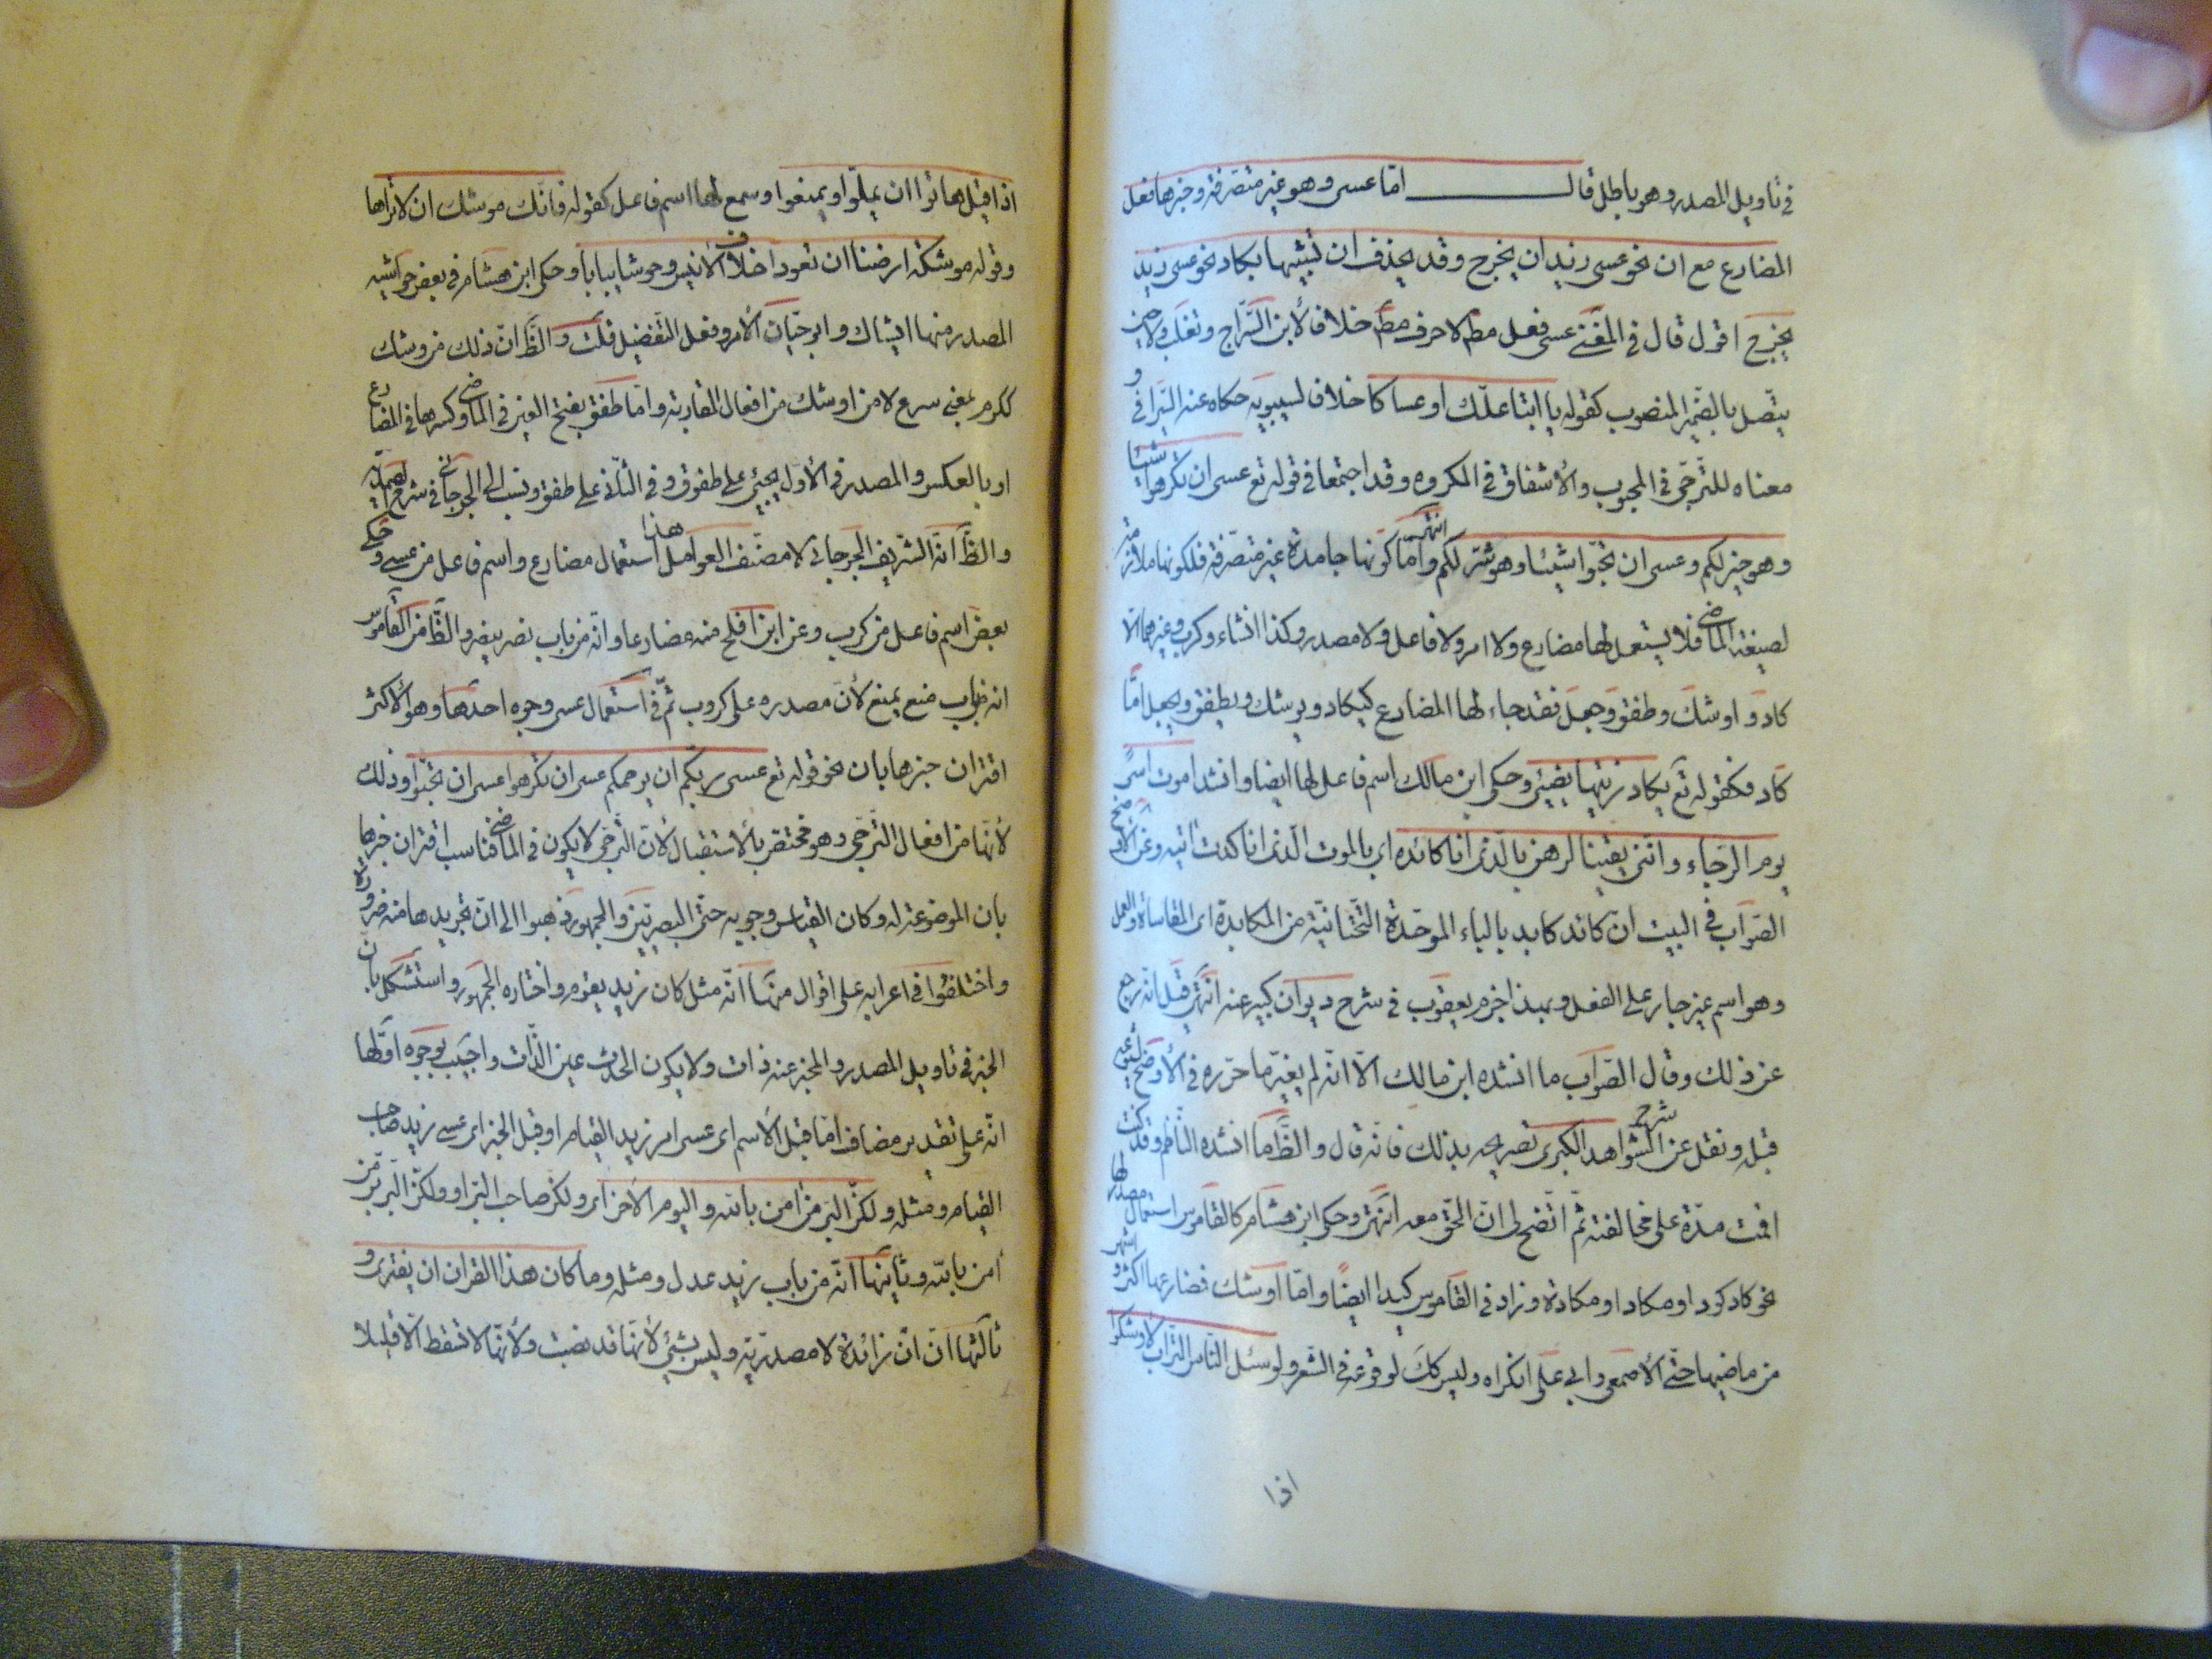 في تأويل المصدر وهو باطل قال اما عسى وهو غير متصرفة وخبرها فعل
المضارع مع ان نحو عسى زيد ان يخرج وقد يحذف ان تشبيها بكاد نحو عسى زيد
يخرج اقول قال في المغني عسى فعل مط لا حرف مط خلافا لابن السراج وثعلب ولا حين
يتصل بالضمير المنصوب كقوله يا ابتا علك او عساكا خلافا لسيبويه حكاه عنه السيرافي و
معناه للترجي في المحبوب والاشفاق في المكروه وقد اجتمعا في قوله تع عسى ان تكرهوا شيئا
وهو خير لكم وعسى ان تحبوا شيئا وهو شر لكم انتهى واما كونها جامدة غير متصرفة فلكونها ملازمة
لصيغة الماضي فلا يستعمل لها مضارع ولا امر ولا فاعل ولا مصدر وكذا انشاء وكرب وغيرهما الا
كاد و اوشك وطفق وجعل فقد جاء لها المضارع كيكاد ويوشك ويطفق ويجعل اما
كاد فكقوله تع يكاد زيتها يضيئ وحكى ابن مالك اسم فاعل لها ايضا وانشد اموت اسى
يوم الرجاء وانني يقينا لرهن بالذي انا كائده اي بالموت الذي انا كدت اتيه وعن الاوضح
الصواب في البيت ان كائد كابد بالباء الموحدة التحتانية من المكابدة اي المقاساة والعمل
وهو اسم غير جار على الفعل وبهذا جزم يعقوب في شرح ديوان كثير عنه انتهى قيل انه رجع
عن ذلك وقال الصواب ما انشده ابن مالك الا انه لم يغير ما حرره في الاوضح
قبله ونقل عن شرح الشواهد الكبرى تصريحه بذلك فانه قال والظ ما انشده الناظم وقد كنت
اقمت مدة على مخالفته ثم اتضح لي ان الحق معه انتهى وحكى ابن هشام كالقاموس استعمال مصدر لها
نحو كاد كودا ومكادا ومكادة وزاد في القاموس كيدا ايضا واما اوشك فمضارعها اكثر و اشهر
من ماضيها حتى الاصمعي وابي علي انكراه وليس كك لوقوعه في الشعر ولو سئل الناس التراب لاوشكوا
اذا
اذا قيل هاتوا ان يملوا ويمنعوا وسمع لها اسم فاعل كقوله فانك موشك ان لا تراها
وقوله موشكة ارضنا ان تعود خلاف الانيس وحوشا يبابا وحكى ابن هشام في بعض حواشيه
المصدر منها ايشاك وابو حيان الامر وفعل التفضيل قلت والظ ان ذلك من وشك
ككرم بمعنى سرع لا من اوشك من افعال المقاربة واما طفق بفتح العين في الماضي وكسرها في المضارع
او بالعكس والمصدر في الاول يجيئ على طفوق وفي الثاني على طفق ونسب الى الجرجاني في شرح
والظ انه الشريف الجرجاني لا مصنف العوامل هذا استعمال مضارع واسم فاعل من عسى وحكى
بعض اسم فاعل من كرب وعن ابن افلح منه مضارعا وانه من باب نصر ينصر والظ من القاموس
انه من باب منع يمنع لان مصدره على كروب ثم في استعمال عسى وجوه احدها وهو الاكثر
اقتران خبرها بان نحو قوله تع عسى ربكم ان يرحمكم عسى ان تكرهوا عسى ان تحبوا وذلك
لانها من افعال الترجي وهو مختص بالاستقبال لان الترجي لا يكون في الماضي فناسب اقتران خبرها
بان الموضوعة له وكان القياس وجوبه حتى البصريين والجمهور ذهبوا الى ان تجريدها منه ضرورة
واختلفوا في اعرابه على اقوال منها انه مثل كان زيد يقوم واختاره الجمهور واستشكل بان
الخبر في تأويل المصدر والمخبر عنه ذات ولا يكون الحدث عين الذات واجيب بوجوه اولها
انه على تقدير مضاف اما قبل الاسم اى عسى امر زيد القيام او قبل الخبر اى عسى زيد صاحب
القيام ومثله ولكن البر من امن بالله واليوم الاخر اى ولكن صاحب البر او ولكن البر بر من
امن بالله وثانيها انه من باب زيد عدل ومثله وما كان هذا القران ان يفترى و
ثالثها ان ان زائدة لا مصدرية وليس بشيئ لانها قد نصبت ولانها لا تسقط الا قليلا